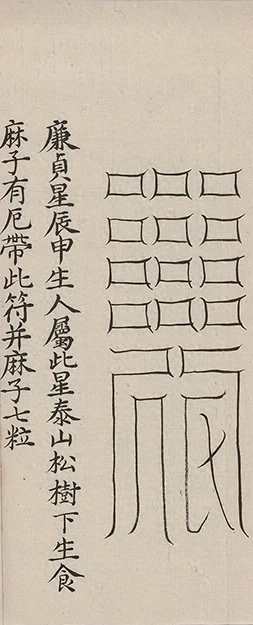 廉貞星辰申生人屬此星泰山松樹下生食
麻子有厄帶此符并麻子七粒